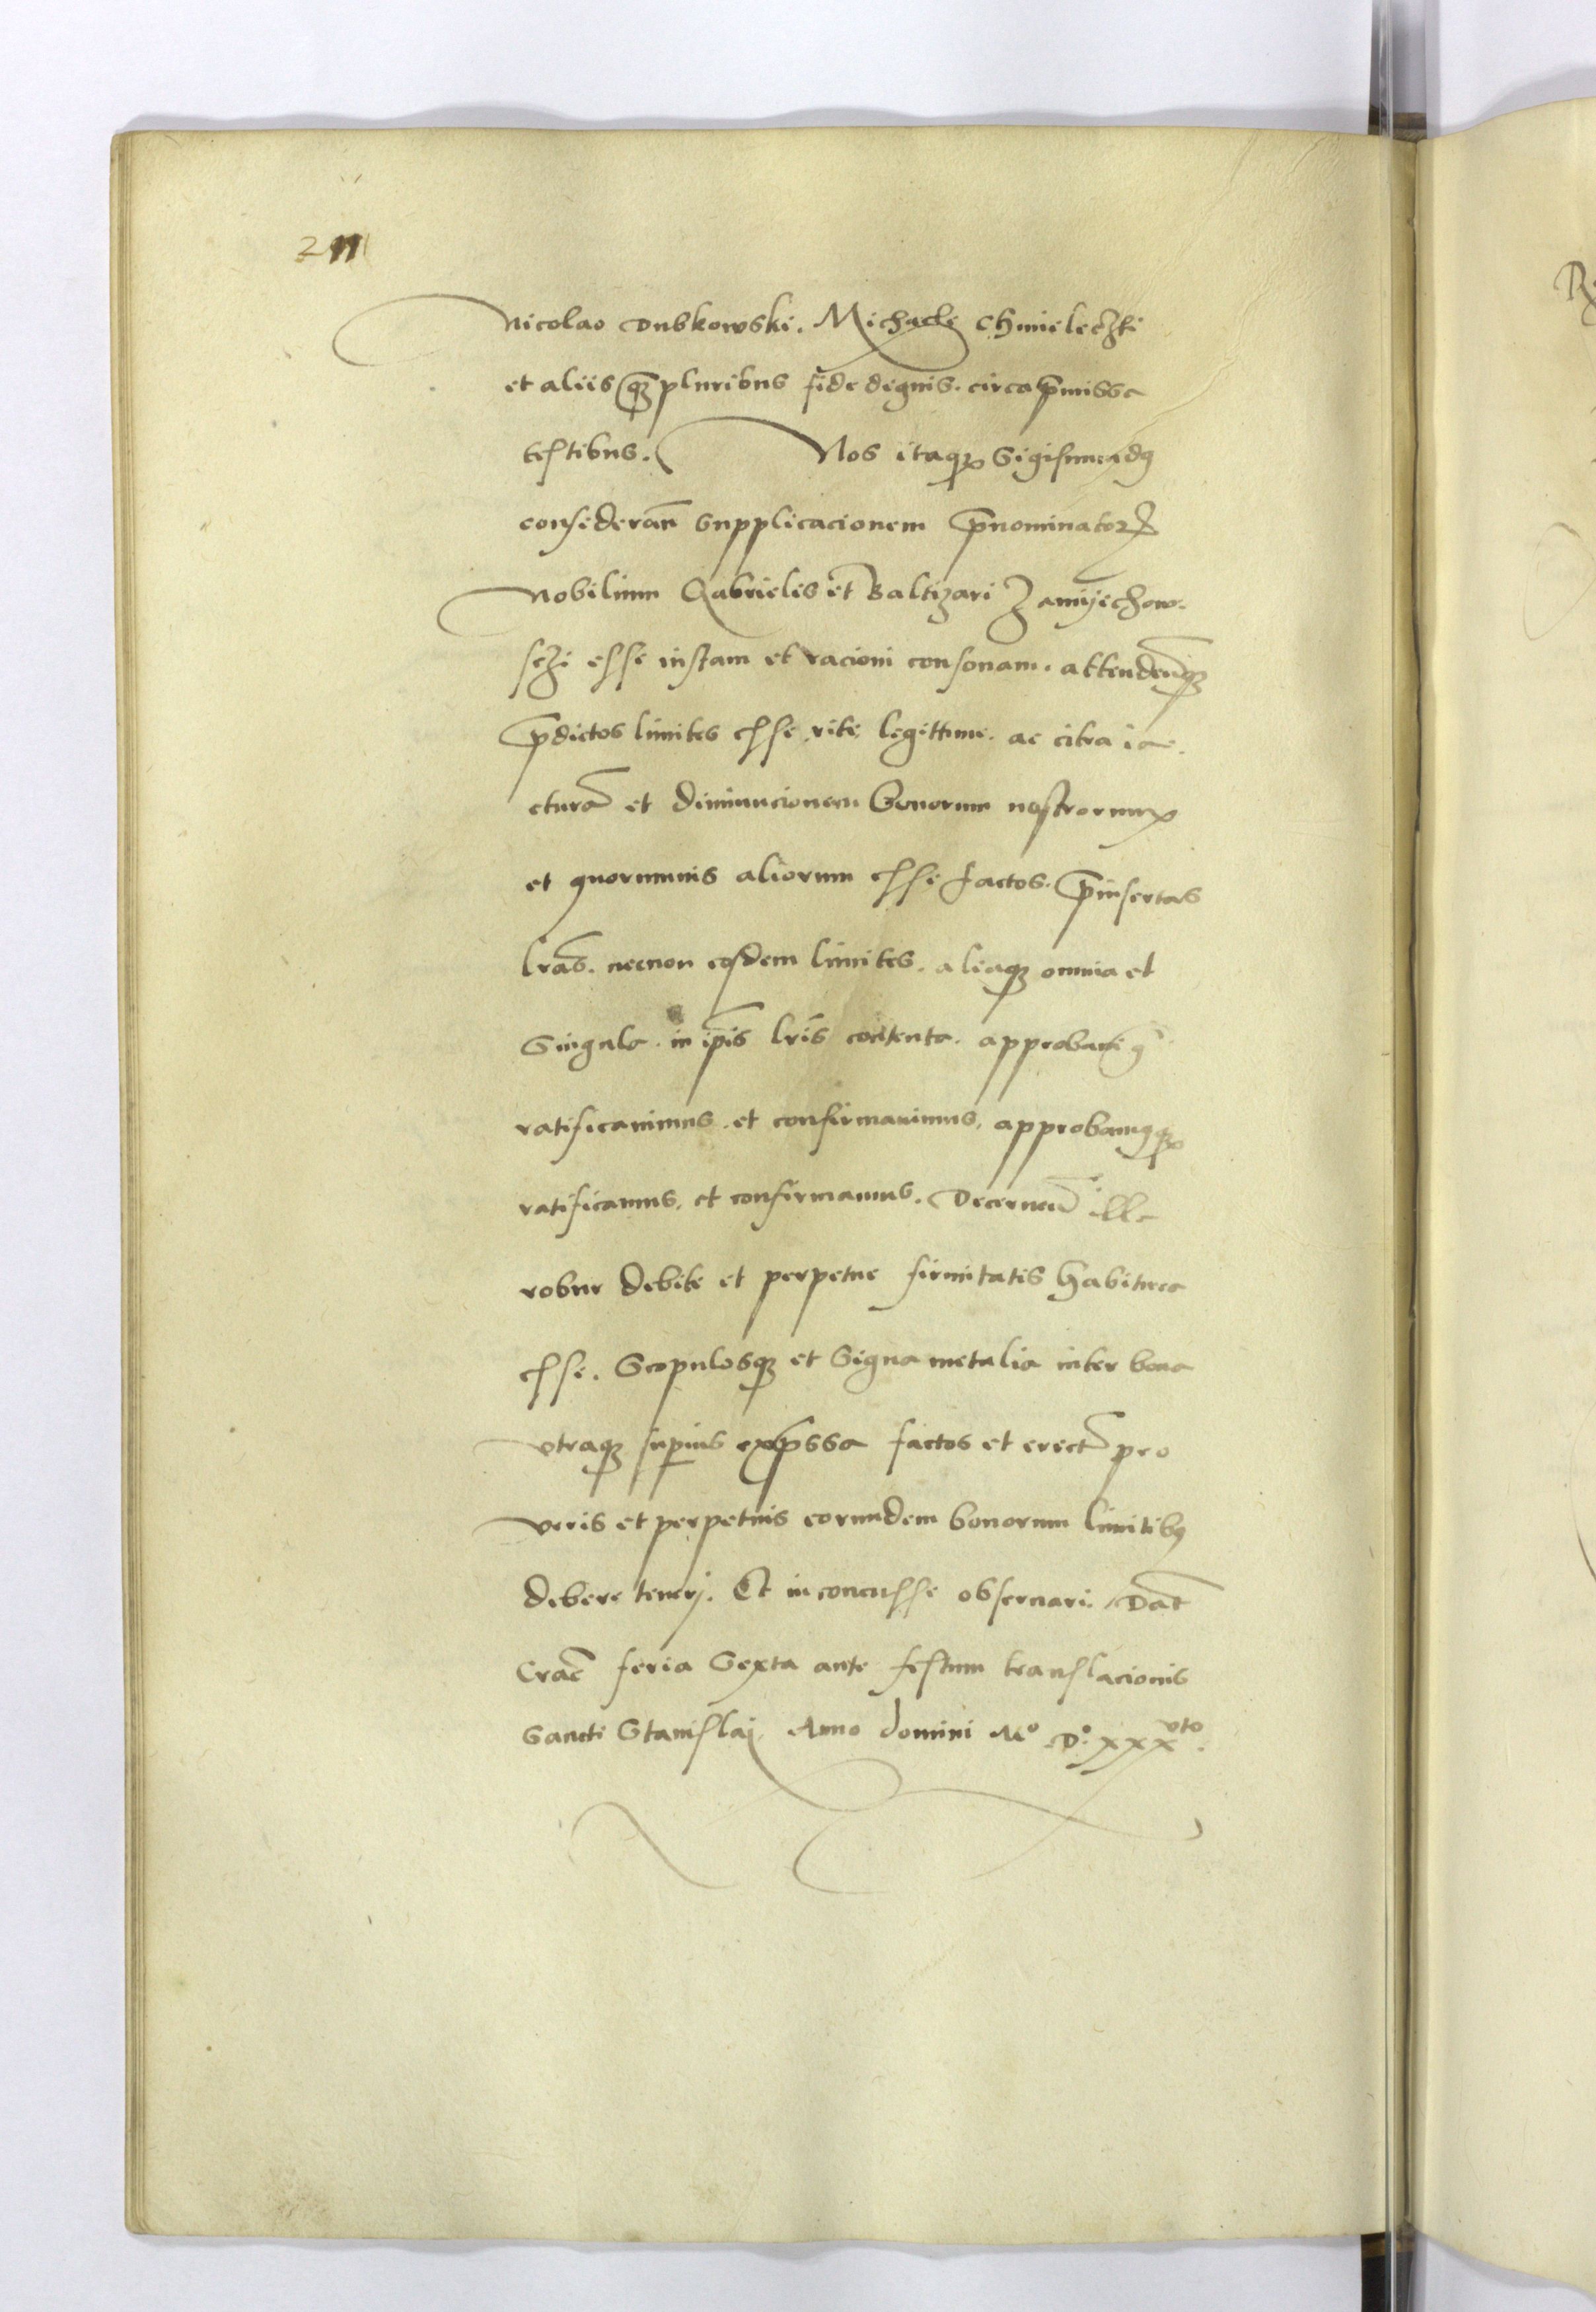 Nicolao Dubkowski. Michaele Chmieleczki
et aliis q̃ꝫ pluribus fide dignis. circa p̃missa
testibus. Nos itaqꝫ Sigismundꝯ
consideran̄ supplicacionem p̃nominatoꝝ
Nobilium Gabrielis et Baltizari Zamijechow-
sczi esse iustam et racioni consonam. attenden̄qꝫ
p̃dictos limites esse rite, legittime. ac citra ia-
cturā et diminucionem bonorum nostrorum
et quorumuis aliorum esse factos. p̃insertas
lr̄as. necnon eosdem limites. aliaqꝫ omnia et
Singula. in ip̄is lr̄is contenta. approbauimꝯ
ratificauimus. et confirmauimus, approbamꝯqꝫ
ratificamus, et confirmamus. Decernen̄ illa
robur debite et perpetue firmitatis habitura
esse. Scopulosqꝫ et Signa metalia inter bona
vtraqꝫ supius exp̃ssa factos et erect̄ pro
veris et perpetuis eorundem bonorum limitibꝯ
debere tenerj. Et inconcusse obseruari. Dat̄
Crac̄ feria Sexta ante festum translacionis
Sancti Stanislaj, Anno domini Mº Dº xxxvto.